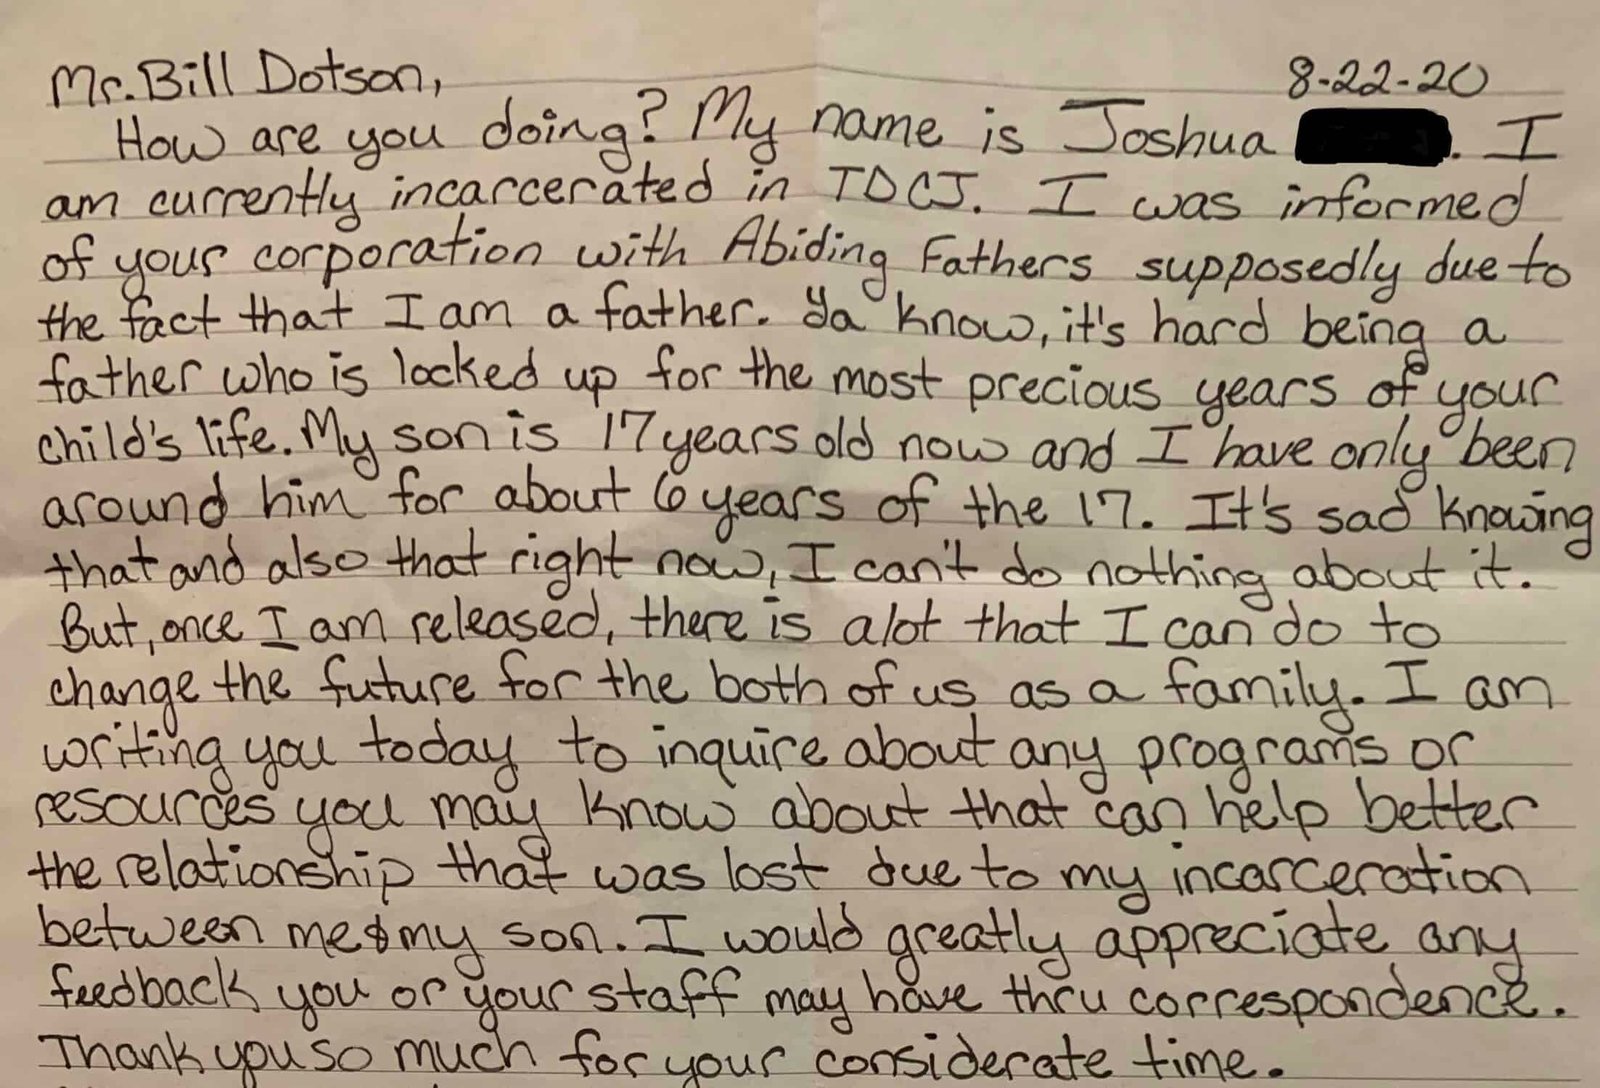 Mr. Bill Dotson,
8-22-20
How are you doing? My name is Joshua . I
am currently incarcerated in TDCJ. I was informed
of your corporation with Abiding Fathers supposedly due to
the fact that I am a father. Ya know, it's hard being a
father who is locked up for the most precious years of your
child's life. My son is 17 years old now and I have only been
around him for about 6 years of the 17. It's sad knowing
that and also that right now, I can't do nothing about it.
But, once I am released, there is alot that I can do to
change the future for the both of us as a family. I am
writing you today to inquire about any programs or
resources you may know about that can help better
the relationship that was lost due to my incarceration
between me & my son. I would greatly appreciate any
feedback you or your staff may have thru correspondence.
Thank you so much for your considerate time.